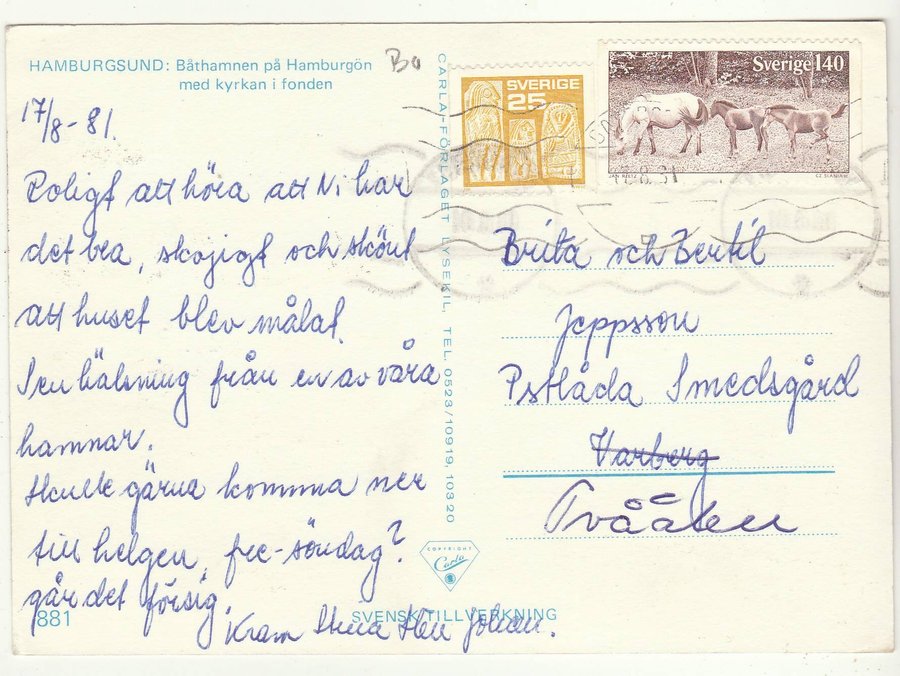 HAMBURGSUND: Båthamnen på Hamburgön
med kyrkan i fonden
Bo
17/8-81.
Roligt att höra att Ni har
det bra, skojigt och skönt
att huset blev målat.
en hälsning från en av våra
hamnar.
Skulle gärna komma ner
till helgen, fre-söndag?
går det försig.
Kram Johan.
881
SVENSK TILLVERKNING
CARLA-FÖRLAGET LYSEKIL, TEL. 0523/10919, 10320
COPYRIGHT
Carla
SVERIGE
25
Sverige 140
JAN RIETZ
CZ SLANIA SC
8.81
Brita och Bertil
Jeppsson
Pstlåda Smedsgård
Varberg
Tvååker